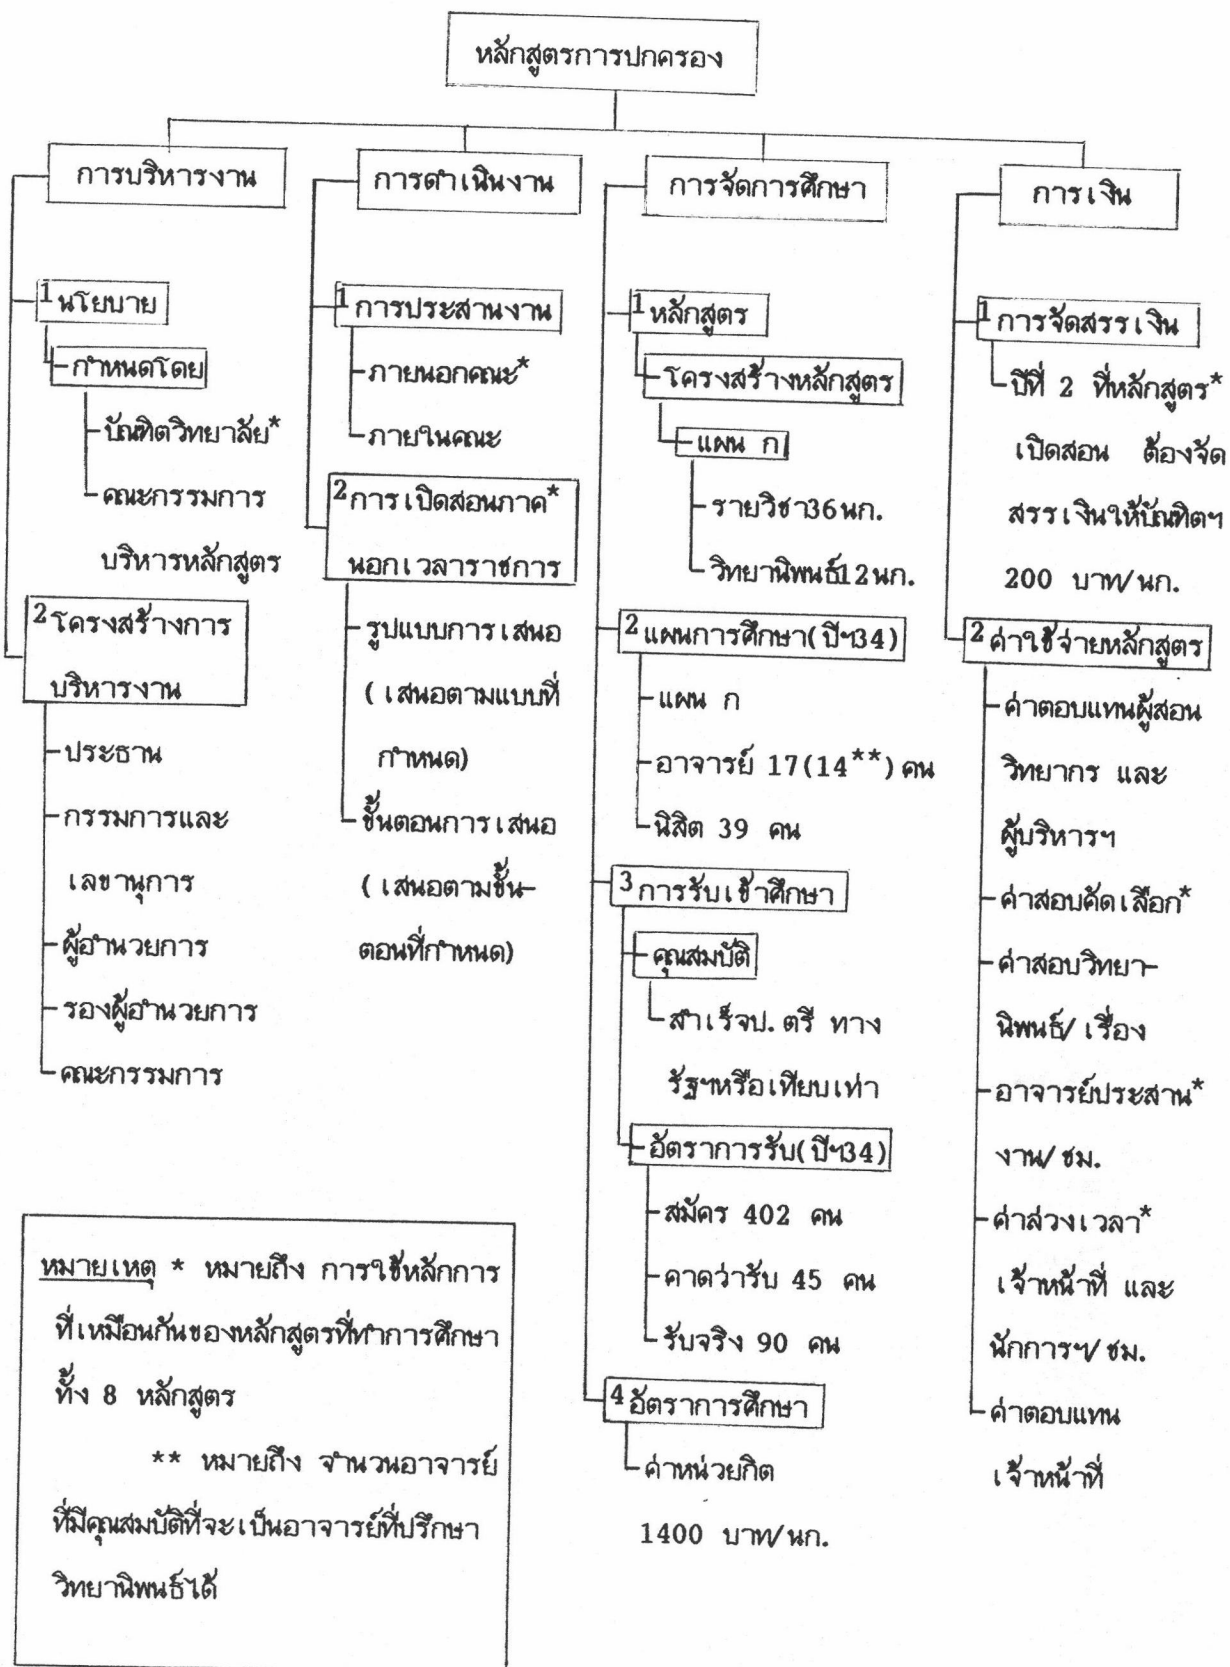 หลักสูตรการปกครอง
การบริหารงาน
1 นโยบาย
-กำหนดโดย
-บัณฑิตวิทยาลัย*
-คณะกรรมการ
บริหารหลักสูตร
2 โครงสร้างการ
บริหารงาน
-ประธาน
-กรรมการและ
เลขานุการ
-ผู้อำนวยการ
-รองผู้อำนวยการ
-คณะกรรมการ
การดำเนินงาน
1 การประสานงาน
-ภายนอกคณะ*
-ภายในคณะ
2 การเปิดสอนภาค*
นอกเวลาราชการ
-รูปแบบการเสนอ
(เสนอตามแบบที่
กำหนด)
-ขั้นตอนการเสนอ
(เสนอตามขั้น-
ตอนที่กำหนด)
การจัดการศึกษา
1 หลักสูตร
-โครงสร้างหลักสูตร
-แผน ก
-รายวิชา36นก.
-วิทยานิพนธ์12นก.
2 แผนการศึกษา(ปีฯ34)
-แผน ก
-อาจารย์ 17(14**)คน
-นิสิต 39 คน
3 การรับเข้าศึกษา
-คุณสมบัติ
-สำเร็จป.ตรี ทาง
รัฐฯหรือเทียบเท่า
-อัตราการรับ(ปีฯ34)
-สมัคร 402 คน
-คาดว่ารับ 45 คน
-รับจริง 90 คน
4 อัตราการศึกษา
-ค่าหน่วยกิต
1400 บาท/นก.
การเงิน
1 การจัดสรรเงิน
-ปีที่ 2 ที่หลักสูตร*
เปิดสอน ต้องจัด
สรรเงินให้บัณฑิตฯ
200 บาท/นก.
2 ค่าใช้จ่ายหลักสูตร
-ค่าตอบแทนผู้สอน
วิทยากร และ
ผู้บริหารฯ
-ค่าสอบคัดเลือก*
-ค่าสอบวิทยา-
นิพนธ์/เรื่อง
-อาจารย์ประสาน*
งาน/ชม.
-ค่าล่วงเวลา*
เจ้าหน้าที่ และ
นักการฯ/ชม.
-ค่าตอบแทน
เจ้าหน้าที่
หมายเหตุ * หมายถึง การใช้หลักการ
ที่เหมือนกันของหลักสูตรที่ทำการศึกษา
ทั้ง 8 หลักสูตร
** หมายถึง จำนวนอาจารย์
ที่มีคุณสมบัติที่จะเป็นอาจารย์ที่ปรึกษา
วิทยานิพนธ์ได้